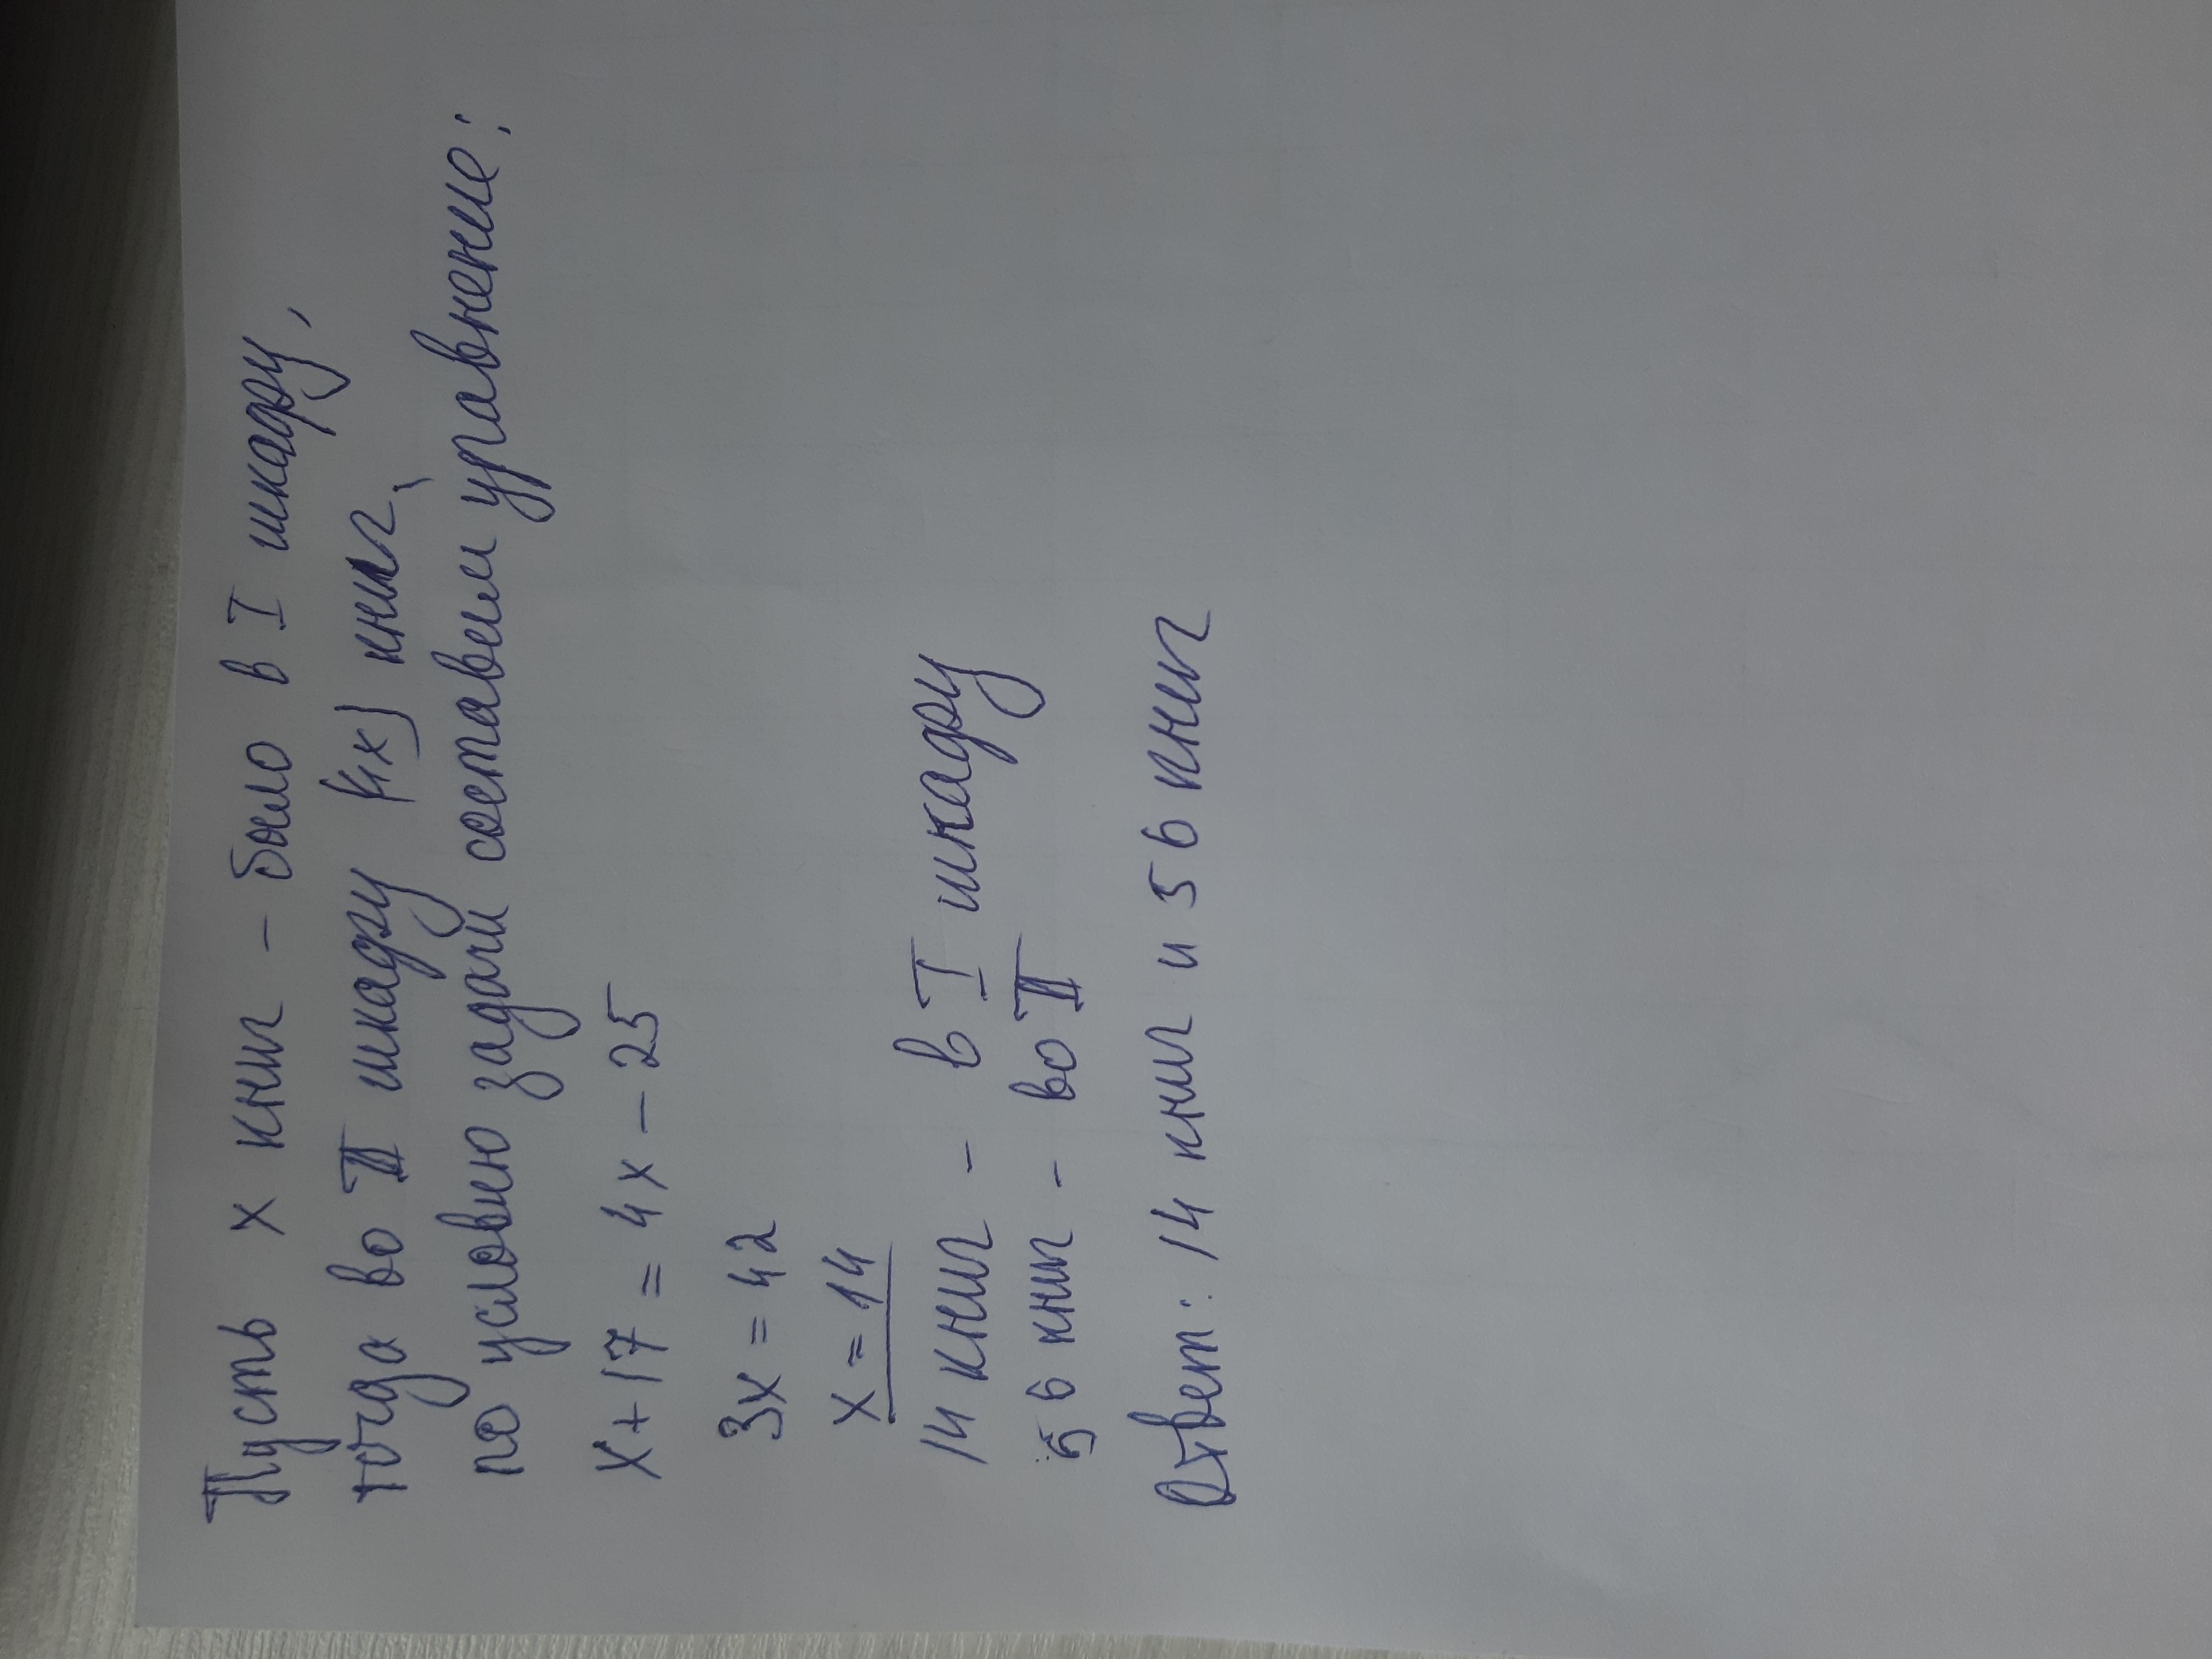 Пусть x книг - было в I шкафу,
тогда во II шкафу (4x) книг,
по условию задачи составим уравнение:
x + 17 = 4x - 25
3x = 42
x = 14
14 книг - в I шкафу
56 книг - во II
Ответ: 14 книг и 56 книг